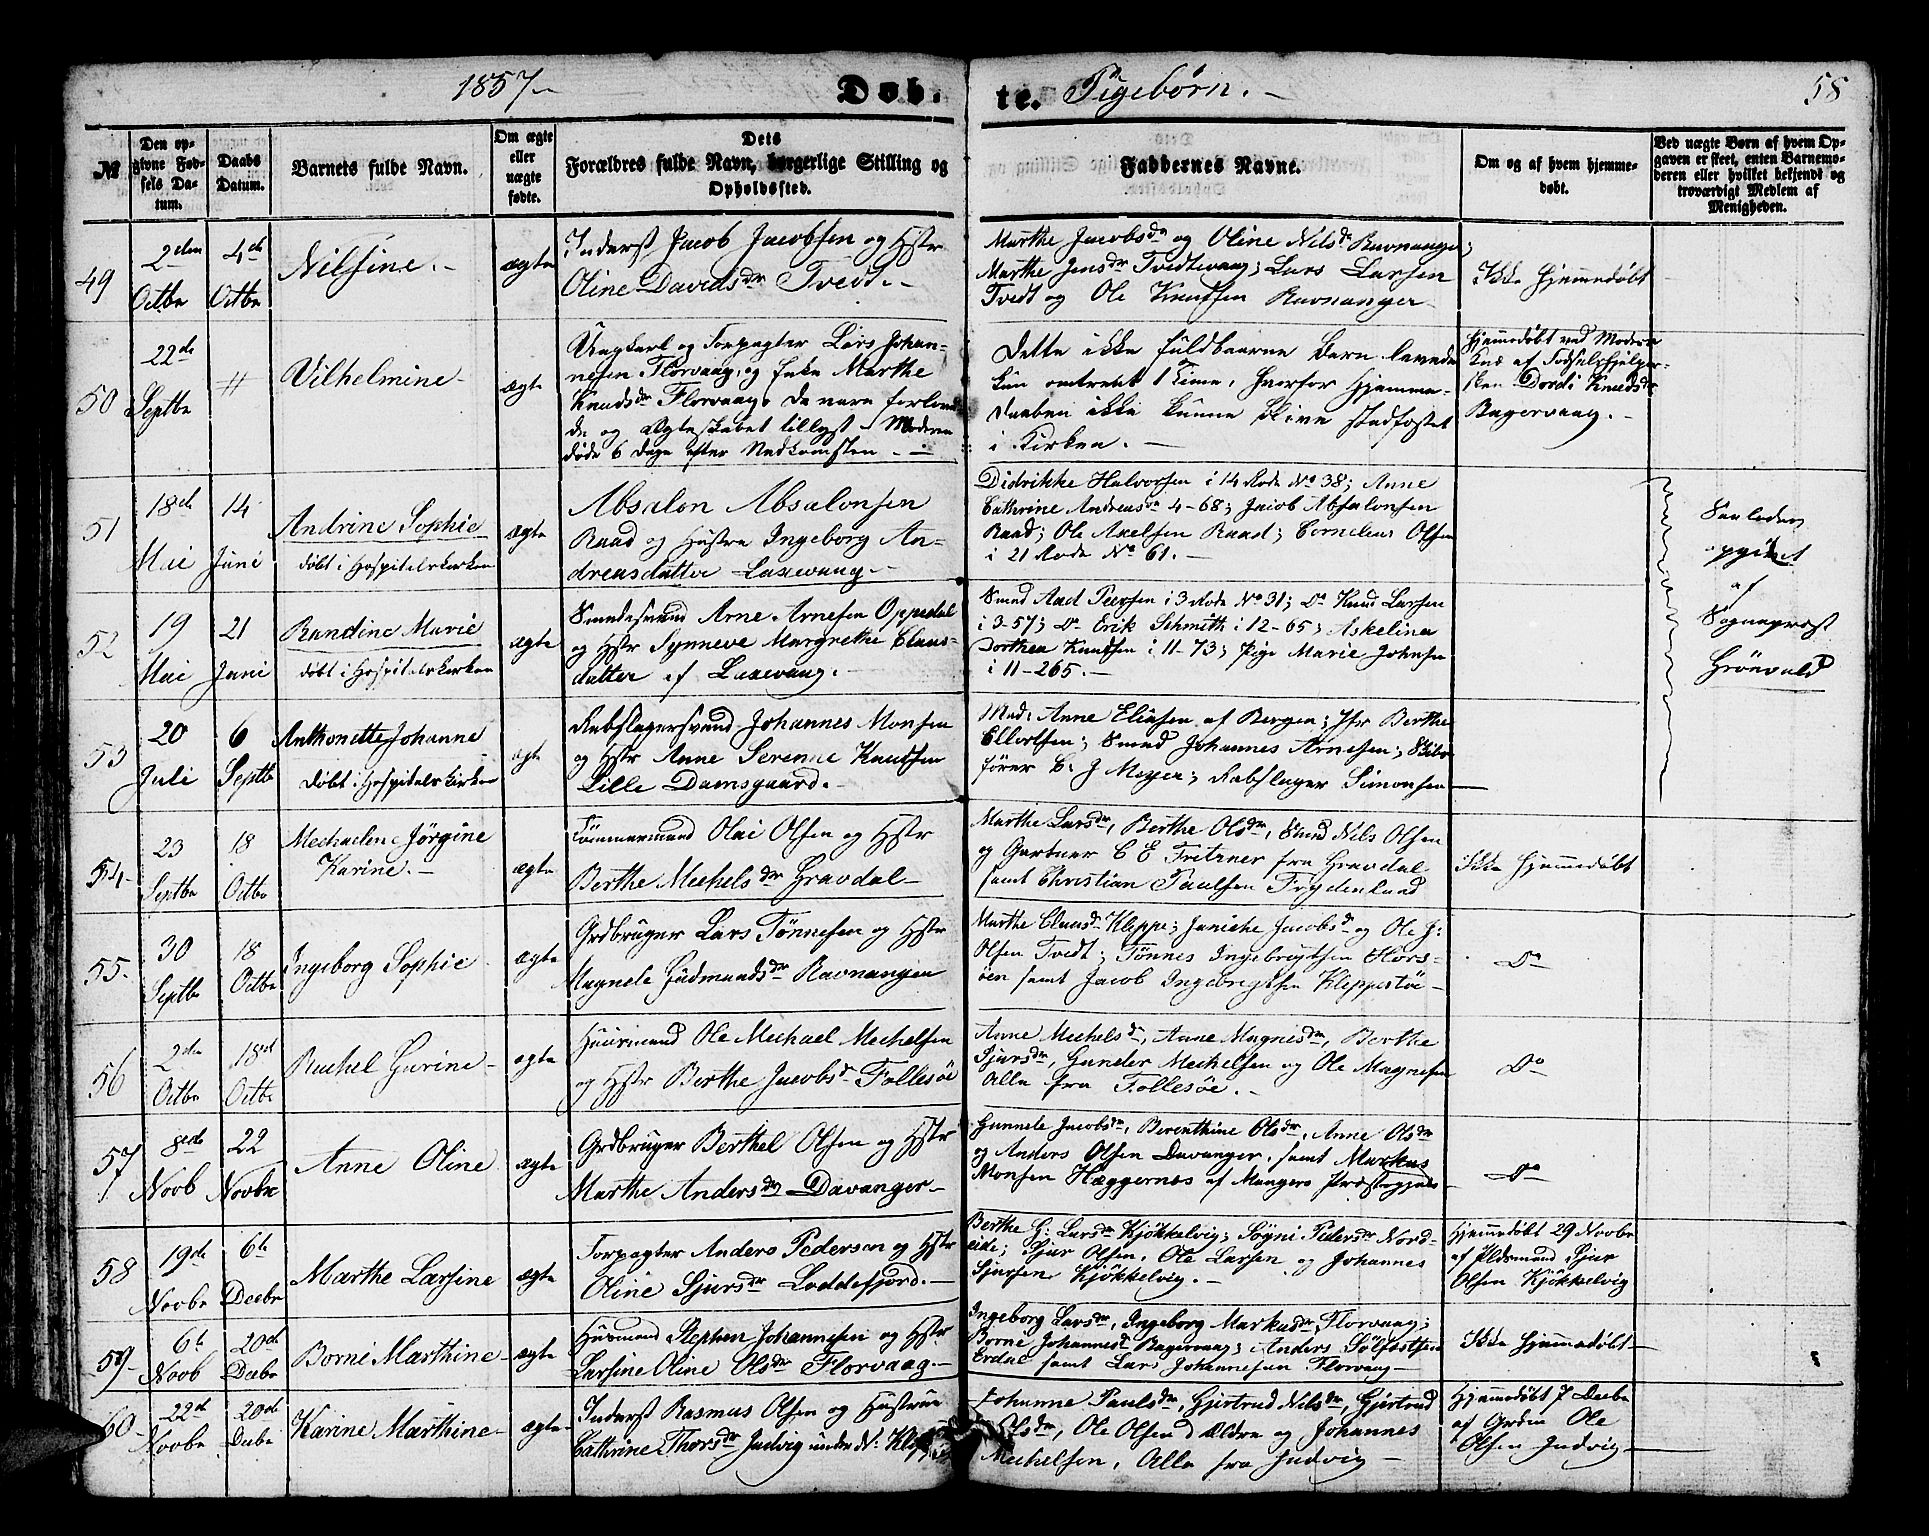 1857
Døb-
te. Pigebørn.
58
№
Den op-
givne Fød-
sels Da-
tum.
Daabs
Datum.
Barnets fulde Navn.
Om ægte
eller
uægte
fødte.
Dets
Forældres fulde Navn, borgerlige Stilling og
Opholdssted.
Faddernes Navne.
Om og af hvem hjemme-
døbt.
Ved uægte Børn af hvem Op-
gaven er skeet, enten Barnemo-
deren eller hvilket bekjendt og
troværdigt Medlem af
Menigheden.
49
2den
Octbr
4de
Octbr
Nilsine.
ægte
Inderst Jacob Jacobsen og Hstr
Oline Davidsdr Tvedt.
Marthe Jacobsdr og Oline Nilsdr Ravnanger;
Marthe Jensdr Tvedtevaag; Lars Larsen
Tvedt og Ole Knudsen Ravnanger
Ikke Hjemmedøbt
50
22de
Septbr
"
Vilhelmine
ægte
Ungkarl og Forpagter Lars Johan-
nesen Florvaag, og Enke Marthe
Knudsdr Florvaag. De vare forlove-
de og Ægteskabet tillyst. Moderen
døde 6 Dage efter Nedkomsten.
Dette ikke fuldbaarne Barn levede
kun omtrent 1 Time, hvorfor Hjemme-
daaben ikke kunne blive stadfæstet
i Kirken.
Hjemmedøbt ved Moderens
Knæ af Fødselshjelper-
sken Dordi Knudsdr
Bagervaag.
51
18de
Mai
14
Juni
Andrine Sophie
døbt i Hospitalskirken
ægte
Absalon Absalonsen
Raad og Hustru Ingeborg An-
dreasdatter Laxevaag.
Didrikke Halvorsen i 14 Rode No 38; Anne
Cathrine Andreasdr 4-68; Jacob Absalonsen
Raad; Ole Axelsen Raad; Cornelius Olsen
i 21 Rode No 61.
Saaledes
opgivet
af
Sognepræst
Grönvold
52
19
Mai
21
Juni
Randine Marie
døbt i Hospitalskirken
ægte
Smedesvend Arne Arnesen Oppedal
og Hstr Synneve Margrethe Claus-
datter af Laxevaag.
Smed Aad Peersen i 3 Rode No 31; Do Knud Larsen
i 3-57; Do Erik Schmith i 12-65; Askeline
Dorthea Knudsen i 11-73; Pige Marie Johnsen
i 11-265.
53
20
Juli
6
Septbr
Anthonette Johanne
Døbt i Hospitalskirken
ægte
Rebslagersvend Johannes Monsen
og Hstr Anne Serenne Knudsen
Lille Damsgaard.
Mad: Anne Eliasen af Bergen; Jfr Berthe
Ellertsen; Smed Johannes Arnesen; Skibs-
fører C. J Meyer; Rebslager Simonsen
54
23
Septbr
18
Octbr
Mechaeline Jörgine
Karine.
ægte
Tömmermand Olai Olsen og Hstr
Berthe Mechelsdr Gravdal
Marthe Larsdr, Berthe Olsdr, Smed Nils Olsen
og Gartner C E Fritzner fra Gravdal
samt Christian Paulsen Frydenlund
Ikke Hjemmedøbt
55.
30
Septbr
18
Octbr
Ingeborg Sophie
ægte
Grdbruger Lars Tönnesen og Hstr
Magnele Gudmundsdr Ravnanger
Marthe Clausdr Kleppe; Janiche Jacobsdr og Ole J:
Olsen Tvedt; Tönnes Ingebrigtsen Hors-
øen samt Jacob Ingebrigtsen Kleppestöe
Do
56
2den
Octbr
18de
Octbr
Rachel Gurine
ægte
Huusmand Ole Mechael Mechelsen
og Hstr Berthe Jacobsdr Follesöe
Anne Mechelsdr, Anne Magnesdr, Berthe
Sjursdr, Gunder Mechelsen og Ole Magnesen
Alle fra Follesöe.
Do
57
8de
Novb
22
Novbr
Anne Oline
ægte
Grdbruger Berthel Olsen og Hstr
Marthe Andersdr Davanger
Gunnele Jacobsdr, Berenthine Olsdr, Anne Olsdr
og Anders Olsen Davanger, samt Markus
Monsen Hæggernes af Mangers Præstegjeld
Do
58
19de
Novbr
6te
Decbr
Marthe Larsine
ægte
Forpagter Anders Pedersen og Hstr
Oline Sjursdr Loddefjord.
Berthe G: Larsdr Kjökkelvig; Sögni Pedersdr Nord-
eide; Sjur Olsen, Ole Larsen og Johannes
Sjursen Kjökkelvig.
Hjemmedøbt 29 Novbr
af Pldsmand Sjur
Olsen Kjökkelvig
59
6te
Novb
20de
Decbr
Borni Marthine
ægte
Husmand Stephen Johannesen og Hstr
Larsine Oline Olsdr Florvaag.
Ingeborg Larsdr, Ingeborg Markusdr, Florvaag;
Borni Johannesdr Bagervaag; Anders Sölfestsen
Erdal samt Lars Johannesen Florvaag
Ikke Hjemmedøbt
60
22de
Novbr
20de
Decbr
Karine Marthine
ægte
Inderst Rasmus Olsen og Hustrue
Cathrine Thorsdr Judvig under No.
Johanne Paulsdr, Gjertrud Nilsdr, Gjertrud
Olsdr, Ole Olsen d Ældre og Johannes
Mechelsen, Alle fra Judvig
Hjemmedøbt 7 Decbr
af Grdm Ole
Olsen Judvig